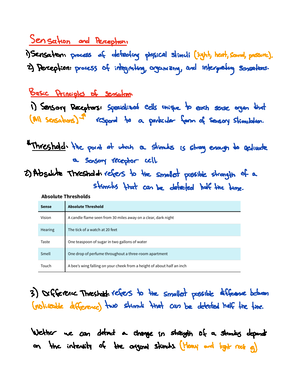 Sensation and Perception:
1) Sensation: process of detecting physical stimuli (light, heat, sound, pressure).
2) Perception: process of integrating, organizing, and interpreting sensations.
Basic Principles of Sensation
1) Sensory Receptors: Specialized cells unique to each sense organ that
(All sensations) respond to a particular form of sensory stimulation.
*Threshold: the point at which a stimulus is strong enough to activate
a sensory receptor cell.
2) Absolute Threshold: refers to the smallest possible strength of a
stimulus that can be detected half the time.
Absolute Thresholds
Sense Absolute Threshold
Vision A candle flame seen from 30 miles away on a clear, dark night
Hearing The tick of a watch at 20 feet
Taste One teaspoon of sugar in two gallons of water
Smell One drop of perfume throughout a three-room apartment
Touch A bee's wing falling on your cheek from a height of about half an inch
3) Difference Threshold: refers to the smallest possible difference between
(noticeable difference) two stimuli that can be detected half the time.
Wether we can detect a change in strength of a stimulus depends
on the intensity of the original stimulus (Heavy and light rock eg)